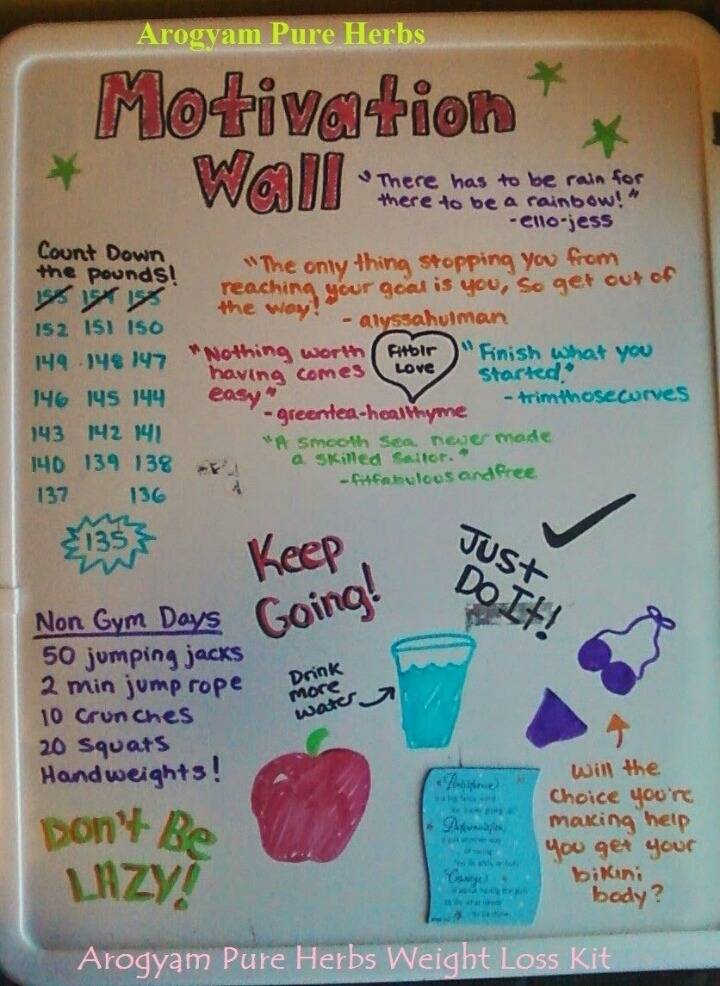 Arogyam Pure Herbs
Motivation
Wall
"There has to be rain for
there to be a rainbow!"
-ello-jess
Count Down
the pounds!
155 154 153
152 151 150
149 148 147
146 145 144
143 142 141
140 139 138
137 136
135
"The only thing stopping you from
reaching your goal is you, So get out of
the way!"
- alyssahulman
"Nothing worth
having comes
easy"
- greentea-healthyme
Fitblr
Love
"Finish what you
started."
- trimthosecurves
"A smooth sea never made
a skilled sailor."
- fitfabulousandfree
Keep
Going!
Just
Do It!
Non Gym Days
50 jumping jacks
2 min jump rope
10 crunches
20 squats
Handweights!
Drink
more
water
Don't Be
LAZY!
Persistence
Determination
Courage
Will the
choice you're
making help
you get your
bikini
body?
Arogyam Pure Herbs Weight Loss Kit